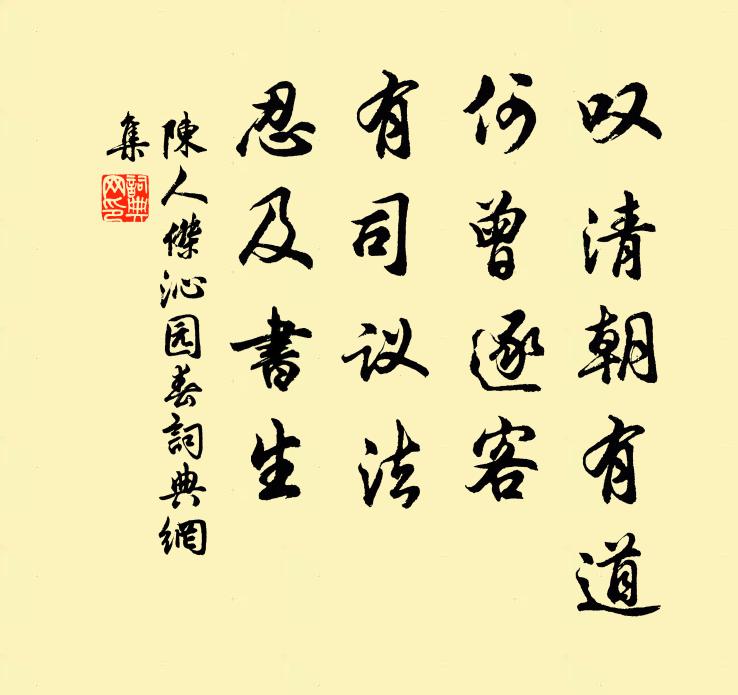 叹清朝有道
何曾逐客
有司议法
忍及書生
陳人傑沁园春詞典網
集
詞典網印